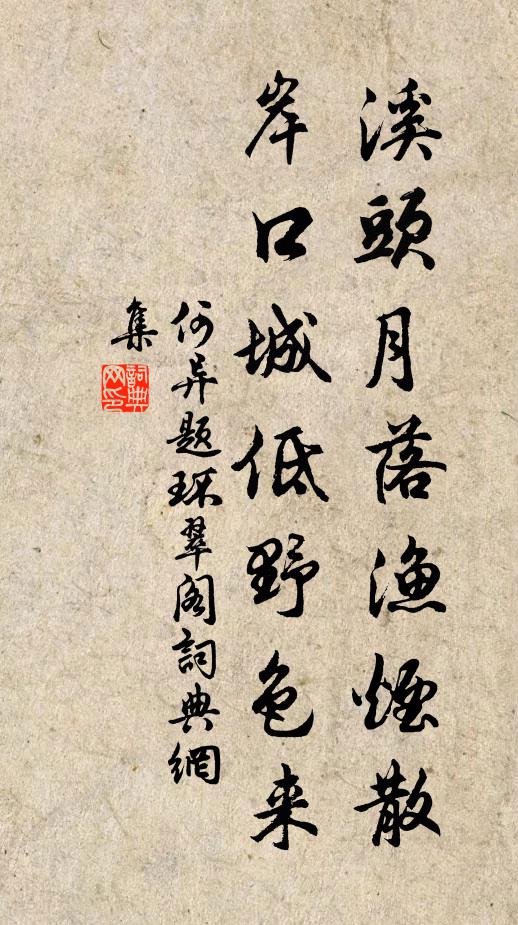 溪頭月落漁煙散
岸口城低野色来
何异題环翠阁詞典網
集
詞典
网印